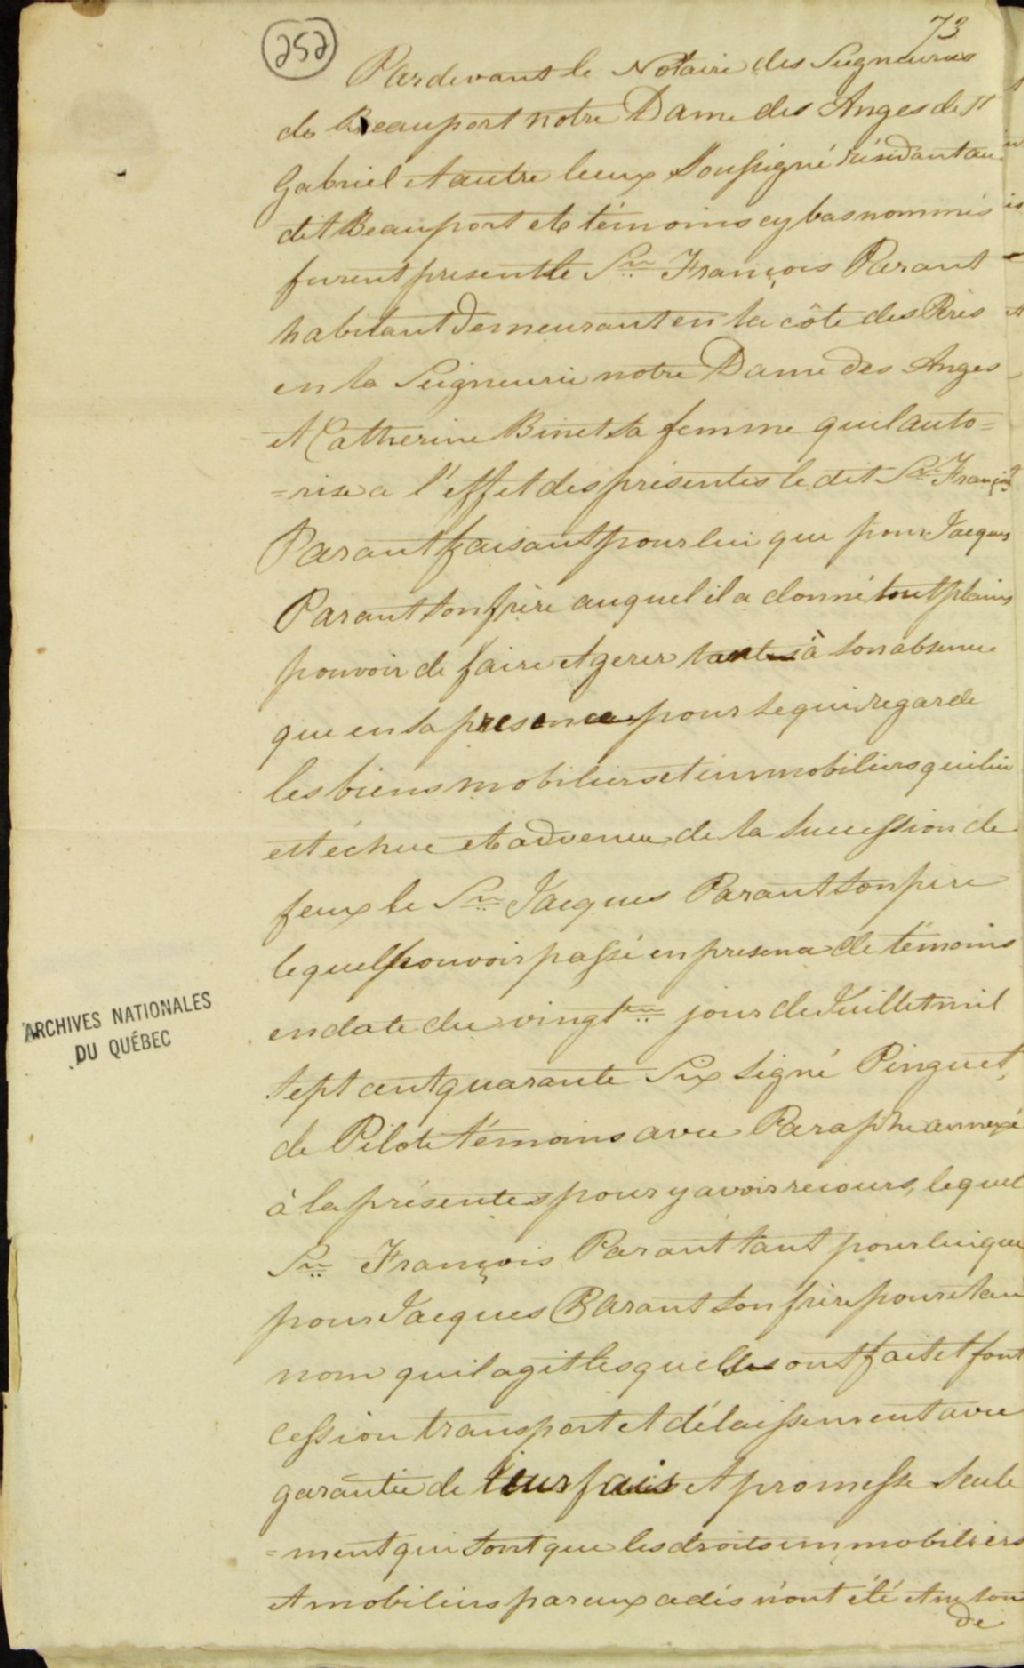 252
73
Pardevant le Notaire des Seigneuries
de Beauport notre Dame des Anges de St
Gabriel et autre lieux Soussigné résidant au
dit Beauport et témoins cy bas nommés
furent present le Sr. François Parant
habitant demeurant en la côte des Pères
en la Seigneurie notre Dame des Anges
et Catherine Binet sa femme quil auto=
=rise a l'effet des présentes le dit Sr. François
Parant faisant pour lui que pour Jacques
Parant son frère auquel il a donné tout plains
pouvoir de faire et gerer tant à son absence
que en sa presence pour se qui regarde
les biens mobiliers et immobiliers qui lui
est échue et advenue de la succession de
feux le Sr. Jacques Parant son pere
lequel pouvoir passé en presence de témoins
en date du vingt.me jour de Juillet mil
sept cent quarante Six signé Pinguet,
de Pilote témoins avec Paraphe annexé
à la présentes pour y avoir recours, lequel
Sr. François Parant tant pour lui que
pour Jacques Parant son frère pour et au
nom quil agit lesquelles ont fait et font
cession transport et délaissement avec
garantie de leurs fais et promesse Seule
=ment qui sont que les droits immobiliers
et mobiliers par eux cedés n'ont été et ne son
de
ARCHIVES NATIONALES
DU QUÉBEC